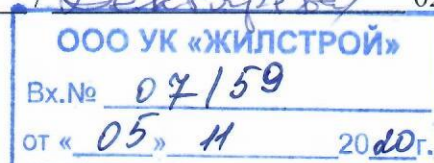 ООО УК «ЖИЛСТРОЙ»
Вх.№ 07/59
от « 05 » 11 2020г.